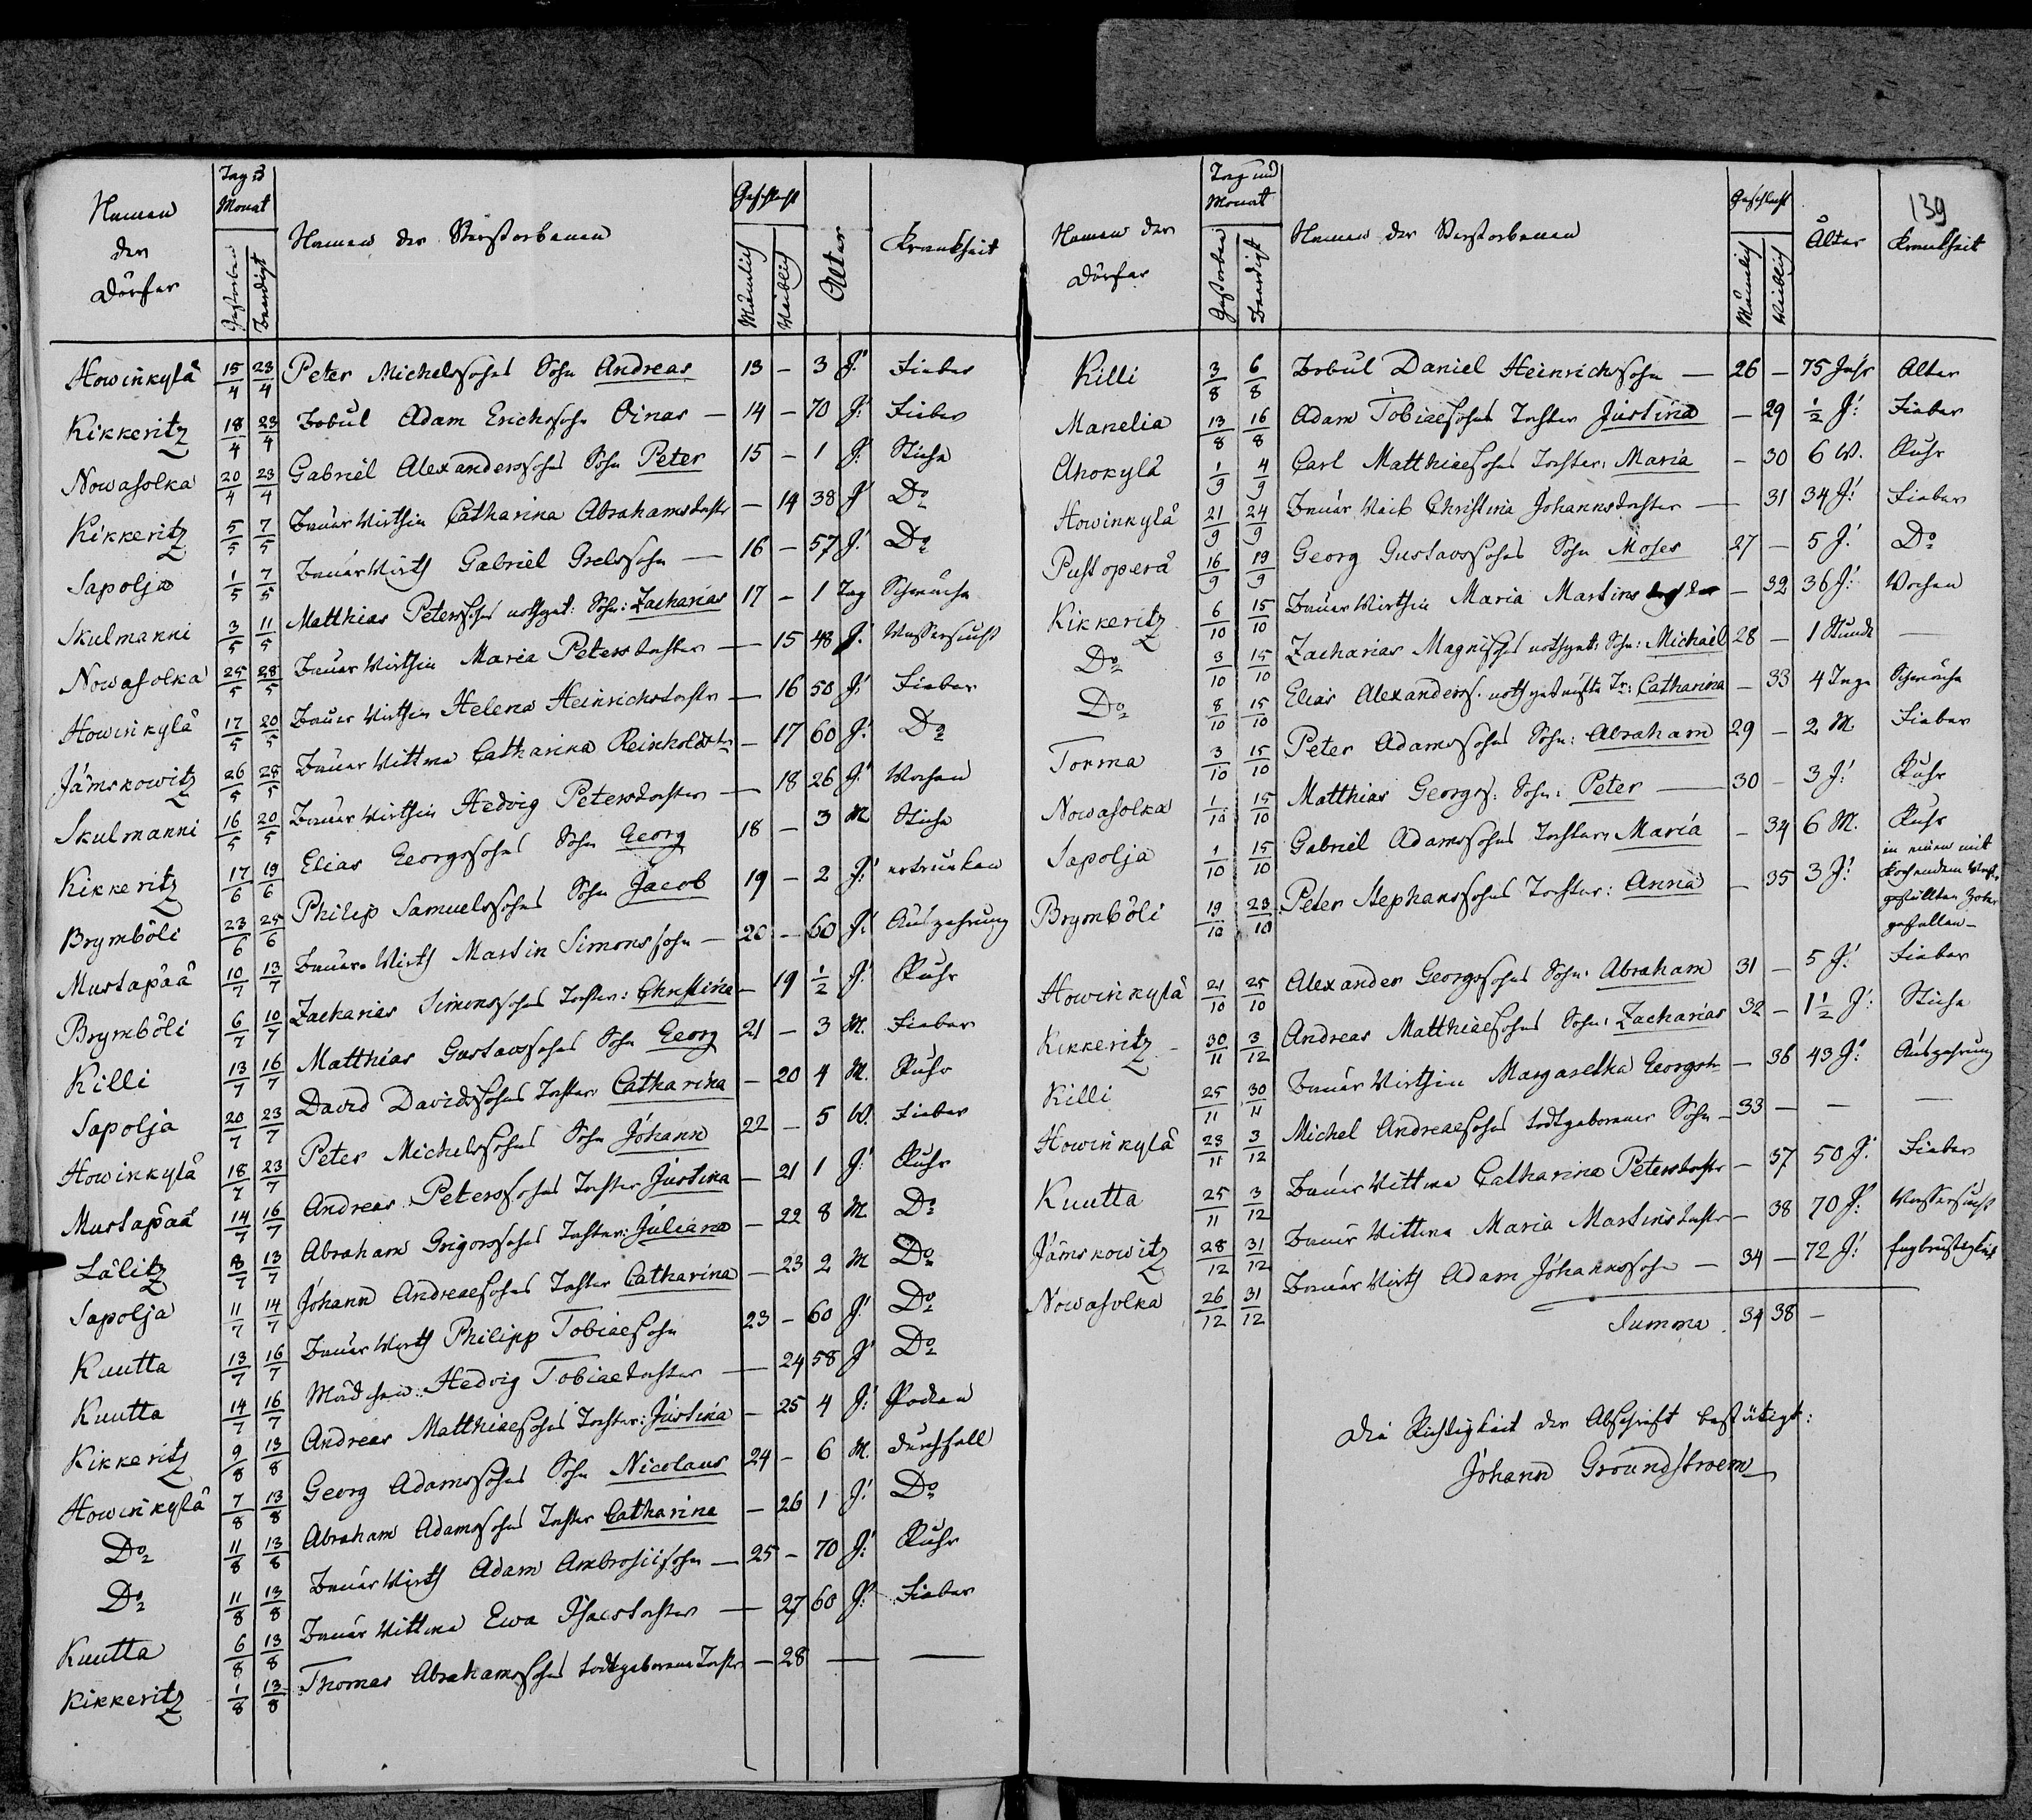 Namen der Dörfer | Tag u Monat | Namen der Verstorbenen | Geschlecht | Alter | Krankheit
Gestorben | Beerdigt | Männlich | Weiblich
Howinkylä 15/4 23/4 Peter Michelssohns Sohn Andreas 13 – 3 J: Fieber
Kikkeritz 18/4 23/4 Lobul Adam Erichssohn Oinas – 14 – 70 J: Fieber
Nowasolka 20/4 23/4 Gabriel Alexanderssohns Sohn Peter 15 – 1 J: Stiche
Kikkeritz 5/5 7/5 Bauer Wirthin Catharina Abrahamstochtr – 14 38 J: Do
Sapolja 1/5 7/5 Bauer Wirth Gabriel Grelssohn – 16 – 57 J: Do
Skulmanni 3/5 11/5 Matthias Peterssohns nothget: Sohn: Zacharias 17 – 1 Tag Schwäche
Nowasolka 25/5 28/5 Bauer Wirthin Maria Peterstochter – 15 48 J: Wassersucht
Howinkylä 17/5 20/5 Bauer Wirthin Helena Heinrichstochtr – 16 50 J: Fieber
Jämskowitz 26/5 28/5 Bauer Wittwe Catharina Reinholdstr – 17 60 J: Do
Skulmanni 16/5 20/5 Bauer Wirthin Hedvig Peterstochter – 18 26 J: Wochen
Kikkeritz 17/6 19/6 Elias Georgssohns Sohn Georg 18 – 3 M Stiche
Brymböli 23/6 25/6 Philip Samuelssohns Sohn Jacob 19 – 2 J: ertrunken
Mustapää 10/7 13/7 Bauer Wirth Martin Simonssohn – 20 – 60 J: Auszehrung
Brymböli 6/7 10/7 Zacharias Simonssohns Tochter: Christina – 19 1/2 J: Ruhr
Killi 13/7 16/7 Matthias Gustavssohns Sohn Georg 21 – 3 M. Fieber
Sapolja 20/7 23/7 David Davidssohns Tochter Catharina – 20 4 M. Ruhr
Howinkylä 18/7 23/7 Peter Michelssohns Sohn Johann 22 – 5 W. Fieber
Mustapää 14/7 16/7 Andreas Peterssohns Tochter Justina – 21 1 J: Ruhr
Lälitz 8/7 13/7 Abraham Grigorssohns Tochter: Juliana – 22 8 M. Do
Sapolja 11/7 14/7 Johann Andreaesohns Tochter Catharina – 23 2 M Do
Kuutta 13/7 16/7 Bauer Wirth Philipp Tobiaesohn 23 – 60 J: Do
Kuutta 14/7 16/7 Mädchen: Hedvig Tobiaetochter – 24 58 J: Do
Kikkeritz 9/8 13/8 Andreas Matthiaesohns Tochter: Justina – 25 4 J: Pocken
Howinkylä 7/8 13/8 Georg Adamssohns Sohn Nicolaus 24 – 6 M. Durchfall
Do 11/8 13/8 Abraham Adamssohns Tochter Catharina – 26 1 J: Do
Do 11/8 13/8 Bauer Wirth Adam Ambrosiisohn – 25 – 70 J: Ruhr
Kuutta 6/8 13/8 Bauer Wittwe Ewa Isacstochter – 27 60 J: Fieber
Kikkeritz 1/8 13/8 Thomas Abrahamssohns todtgeborene Tochtr – 28 – –
139
Namen der Dörfer | Tag und Monat | Namen der Verstorbenen | Geschlecht | Alter | Krankheit
Gestorben | Beerdigt | Männlich | Weiblich
Killi 3/8 6/8 Lobul Daniel Heinrichssohn – 26 – 75 Jahr Alter
Manelia 13/8 16/8 Adam Tobiaesohns Tochter Justina – 29 1/2 J: Fieber
Ahokylä 1/9 4/9 Carl Matthiaesohns Tochter: Maria – 30 6 W. Ruhr
Howinkylä 21/9 24/9 Bauer Weib Christina Johannstochter – 31 34 J: Fieber
Pustoperä 16/9 19/9 Georg Gustavssohns Sohn Moses 27 – 5 J: Do
Kikkeritz 6/10 15/10 Bauer Wirthin Maria Martinstochter – 32 36 J: Wochen
Do 3/10 15/10 Zacharias Magnisohns nothget: Sohn: Michael 28 – 1 Stunde –
Do 8/10 15/10 Elias Alexanderss. nothgetaufte Tr: Catharina – 33 4 Tage Schwäche
Torma 3/10 15/10 Peter Adamssohns Sohn: Abraham 29 – 2 M. Fieber
Nowasolka 1/10 15/10 Matthias Georgss: Sohn: Peter – 30 – 3 J: Ruhr
Sapolja 1/10 15/10 Gabriel Adamssohns Tochter Maria – 34 6 M. Ruhr
Brymböli 19/10 23/10 Peter Stephanssohns Tochter: Anna – 35 3 J: in einen mit
kochendem Wasser
gefüllten Zober
gefallen –
Howinkylä 21/10 25/10 Alexander Georgssohns Sohn: Abraham 31 – 5 J: Fieber
Kikkeritz – 30/11 3/12 Andreas Matthiaesohns Sohn: Zacharias 32 – 1 1/2 J: Stiche
Killi 25/11 30/11 Bauer Wirthin Margaretha Georgstr – 36 43 J: Auszehrung
Howinkylä 23/11 3/12 Michel Andreaesohns todtgeborener Sohn – 33 – – –
Kuutta 25/11 3/12 Bauer Wittwe Catharina Peterstochtr – 37 50 J: Fieber
Jämskowitz 28/12 31/12 Bauer Wittwe Maria Martinstochtr – 38 70 J: Wassersucht
Nowasolka 26/12 31/12 Bauer Wirth Adam Johannssohn – 34 – 72 J: Engbrüstigkeit
Summa 34 38 –
Die Richtigkeit der Abschrift bestätigt:
Johann Groundstroem